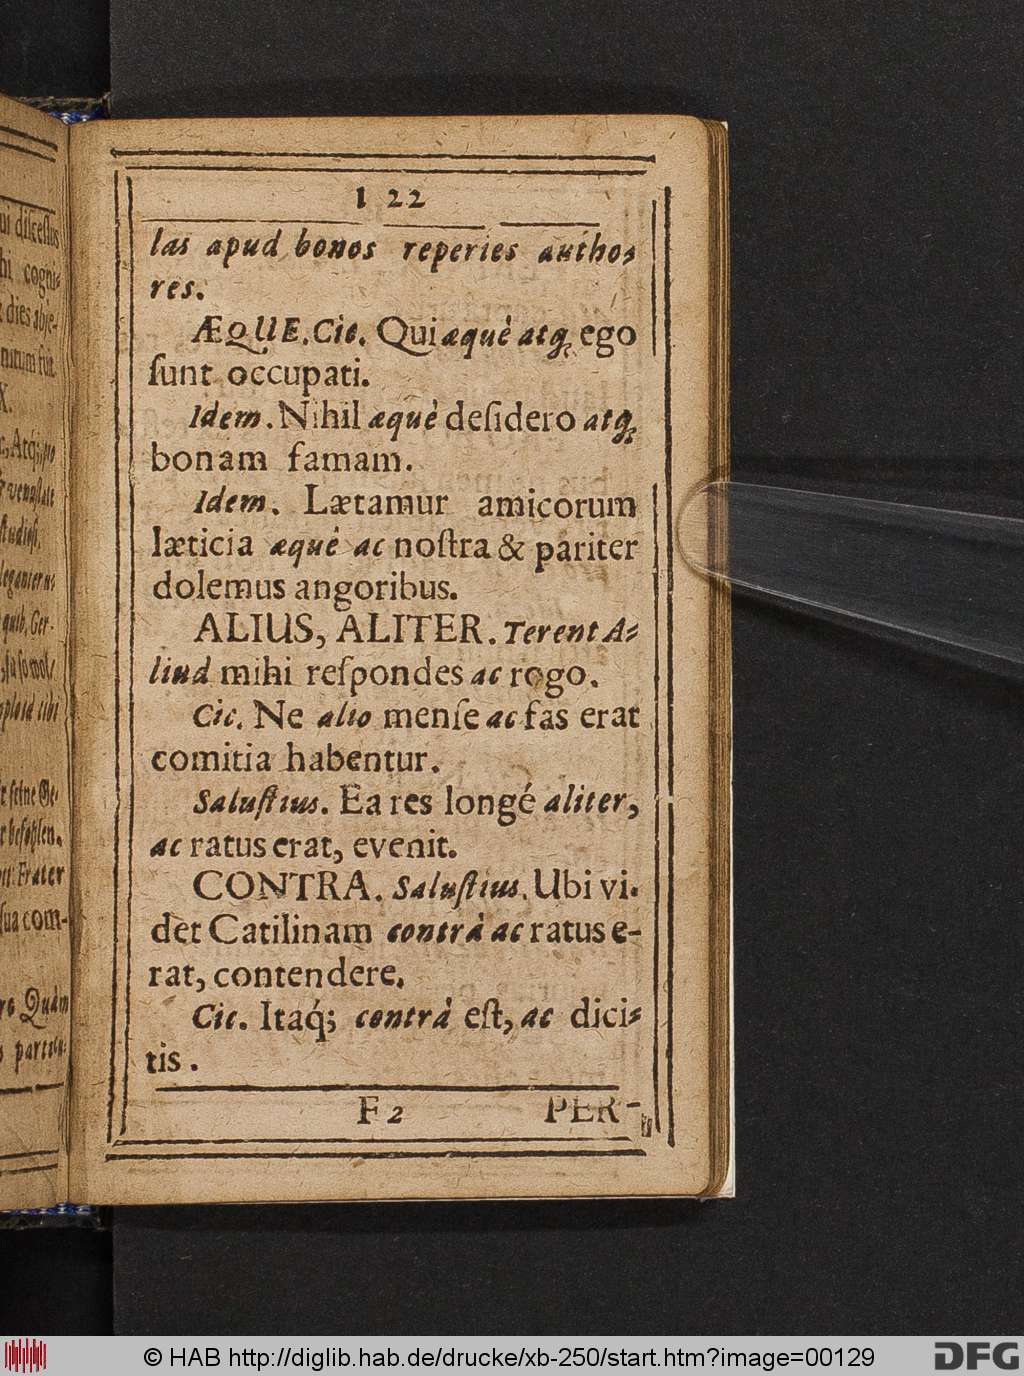 122
las apud bonos reperies autho-
res.
ÆQUE. Cic. Qui æquè atq; ego
ſunt occupati.
Idem. Nihil æquè deſidero atq;
bonam famam.
Idem. Lætamur amicorum
læticia æquè ac noſtra & pariter
dolemus angoribus.
ALIUS, ALITER. Terent A-
liud mihi reſpondes ac rogo.
Cic. Ne alio menſe ac fas erat
comitia habentur.
Saluſtius. Ea res longé aliter,
ac ratus erat, evenit.
CONTRA. Saluſtius. Ubi vi-
det Catilinam contrà ac ratus e-
rat, contendere.
Cic. Itaq́; contrà eſt, ac dici-
tis.
F 2 PER-
© HAB http://diglib.hab.de/drucke/xb-250/start.htm?image=00129
DFG